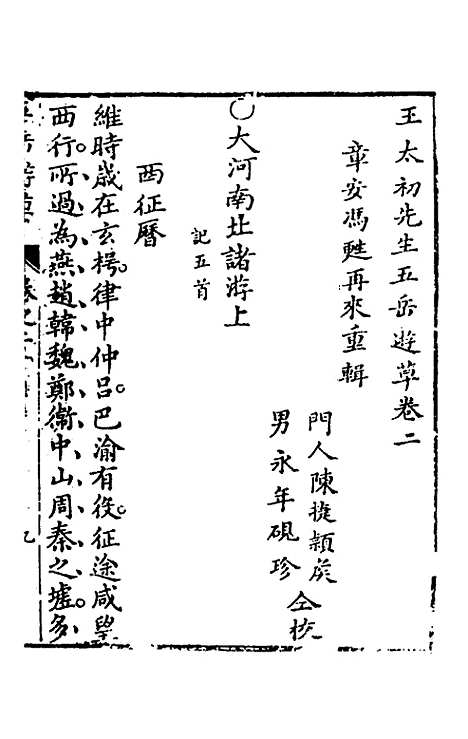 王太初先生五岳遊草卷二
章安馮甦再來重輯
門人陳㨗穎侯
男永年硯珍
仝校
〇大河南北諸游上
記五首
西征曆
維時歲在玄枵律中仲呂巴渝有役征途咸望
西行所過為燕趙韓魏鄭衛中山周秦之墟多